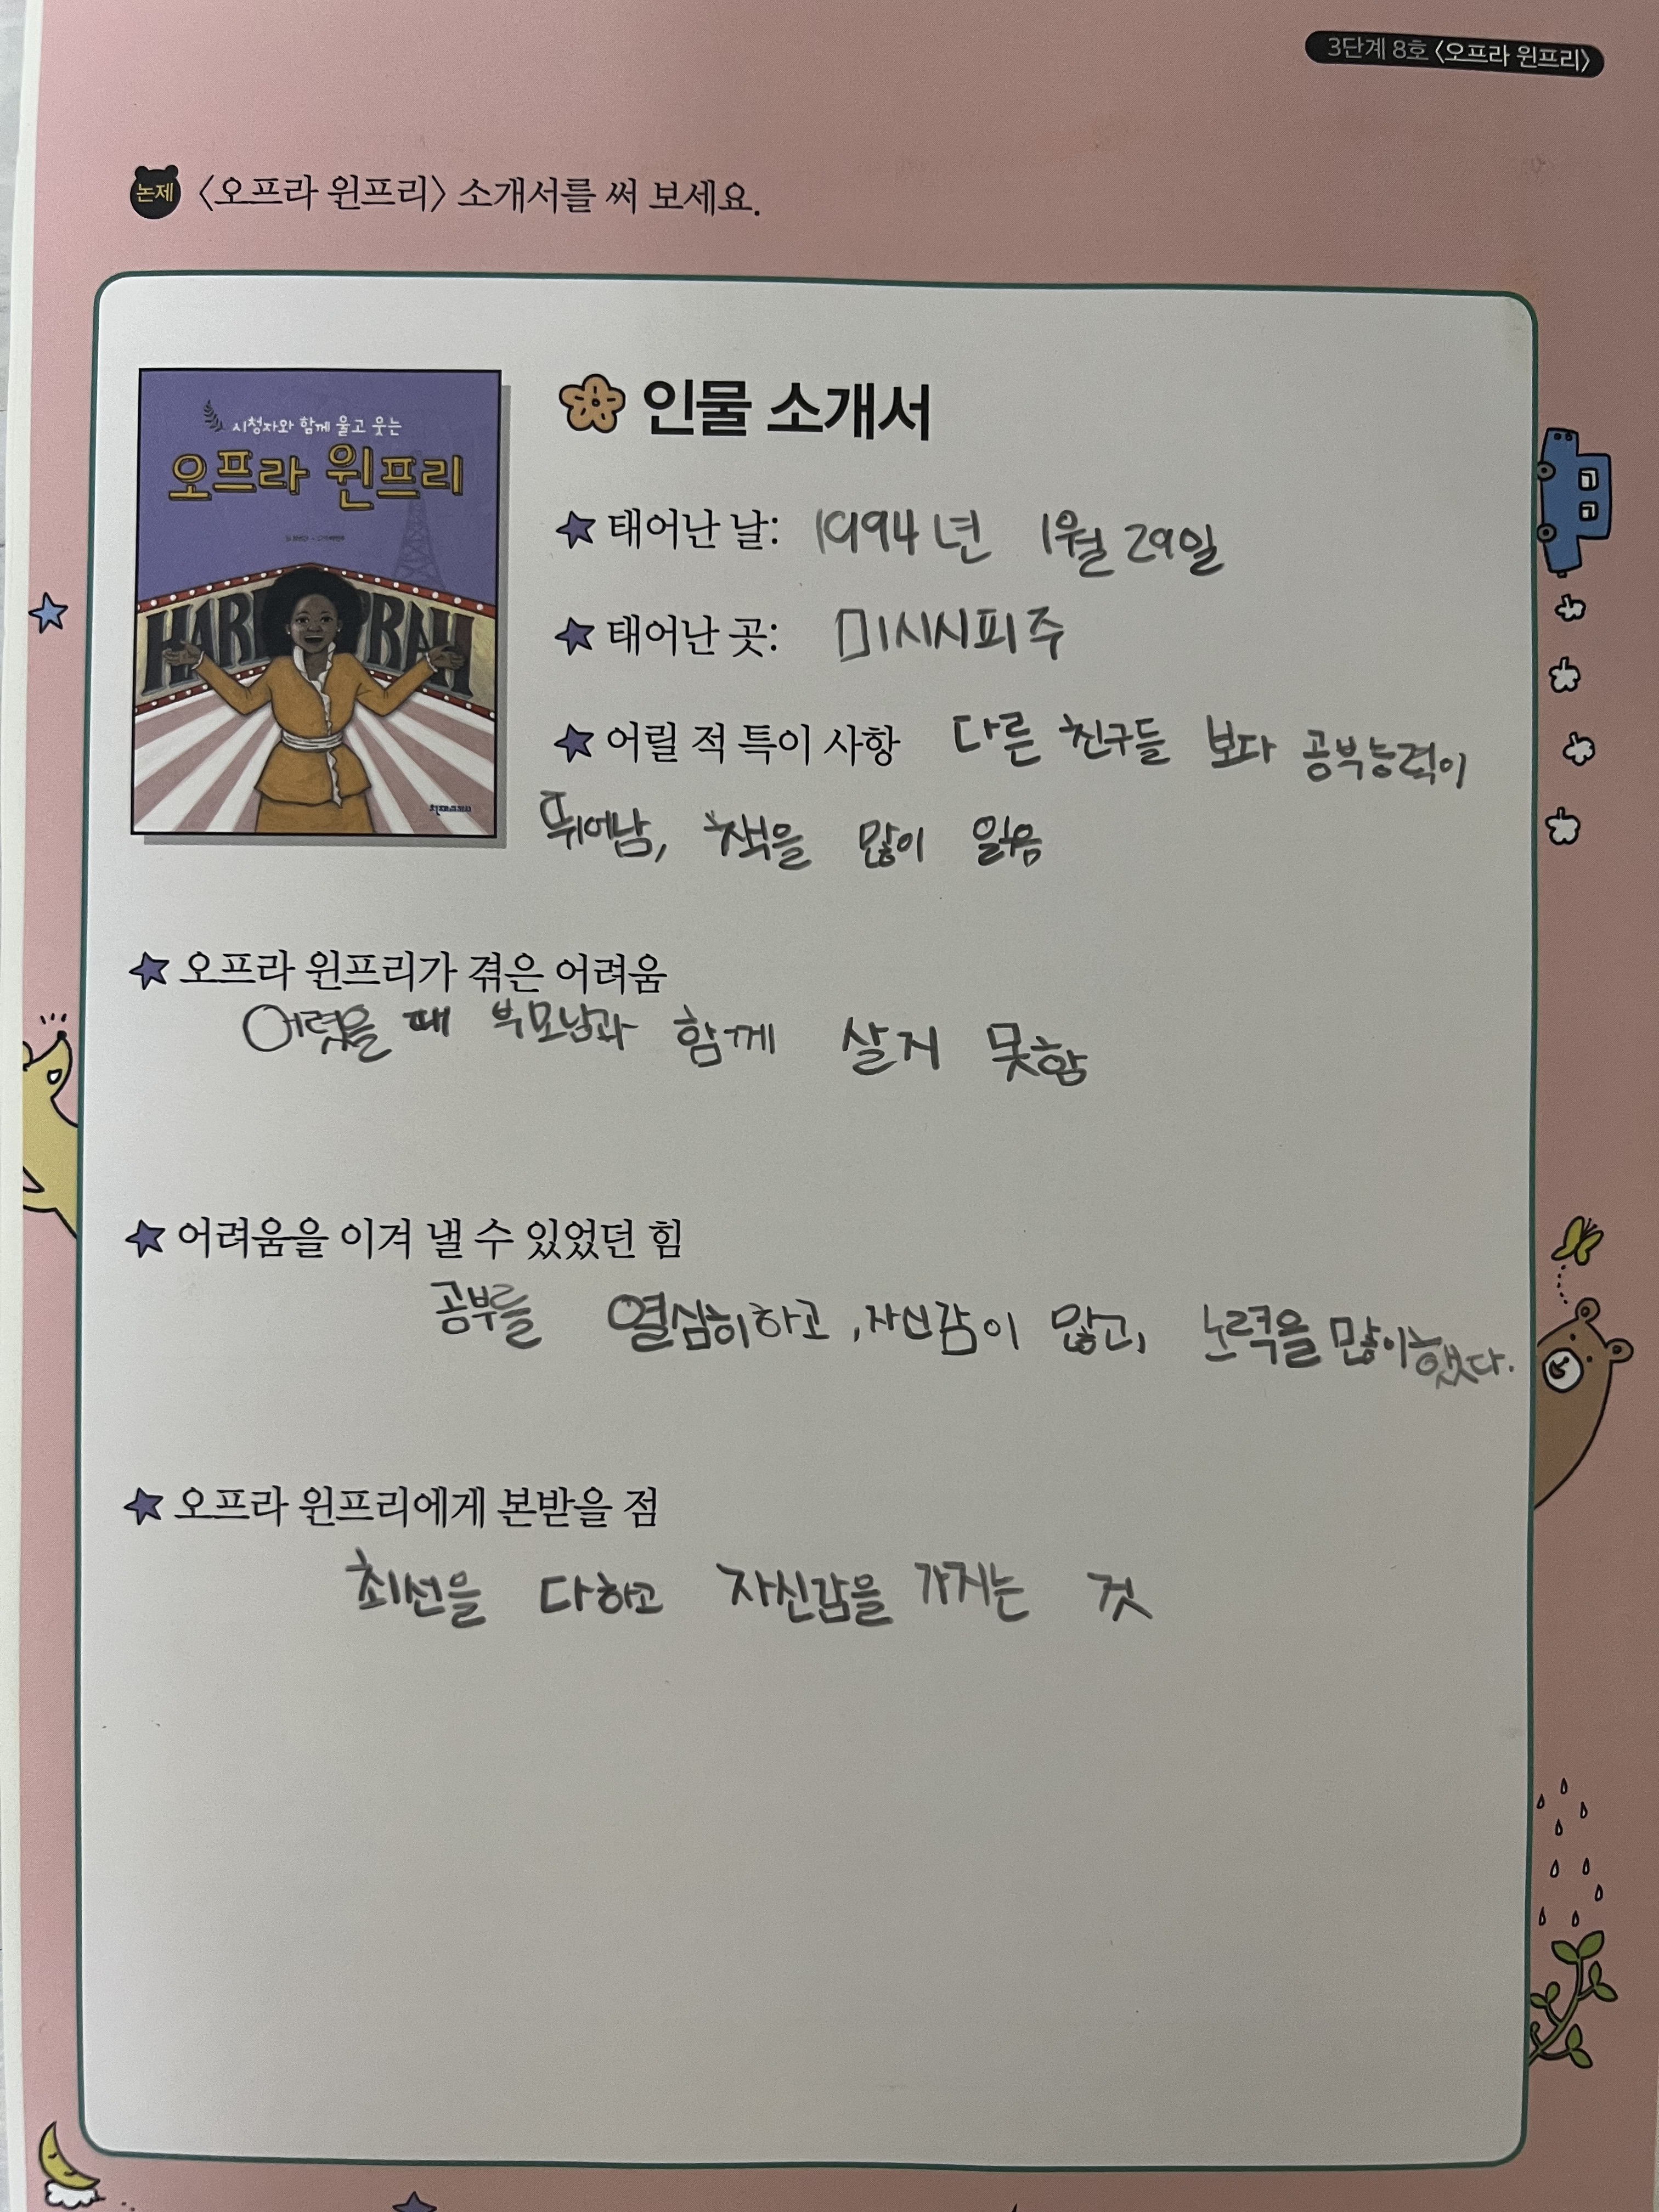 3단계 8호 〈오프라 윈프리〉
논제 〈오프라 윈프리〉 소개서를 써 보세요.
시청자와 함께 울고 웃는
오프라 윈프리
HAR PRAH
인물 소개서
태어난 날: 1994년 1월 29일
태어난 곳: 미시시피주
어릴 적 특이 사항 다른 친구들 보다 공부능력이
뛰어남, 책을 많이 읽음
오프라 윈프리가 겪은 어려움
어렸을 때 부모님과 함께 살지 못함
어려움을 이겨 낼 수 있었던 힘
공부를 열심히하고, 자신감이 많고, 노력을 많이했다.
오프라 윈프리에게 본받을 점
최선을 다하고 자신감을 가지는 것